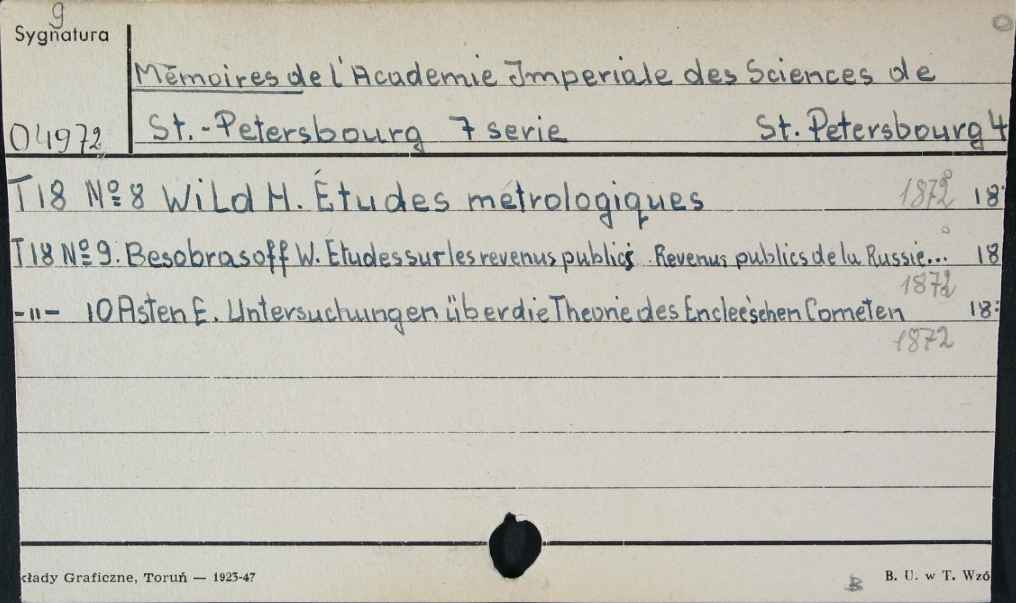 9
Sygnatura
Mémoires de l'Academie Imperiale des Sciences de
04972 St.-Petersbourg 7 serie St. Petersbourg 4
T 18 Nº 8 Wild H. Études métrologiques 1872 18
T 18 Nº 9. Besobrasoff W. Etudes sur les revenus publics Revenus publics de la Russie... 18
1872
-"- 10 Asten E. Untersuchungen über die Theorie des Encleeschen Cometen 18
1872
kłady Graficzne, Toruń — 1923-47 B B. U. w T. Wzó